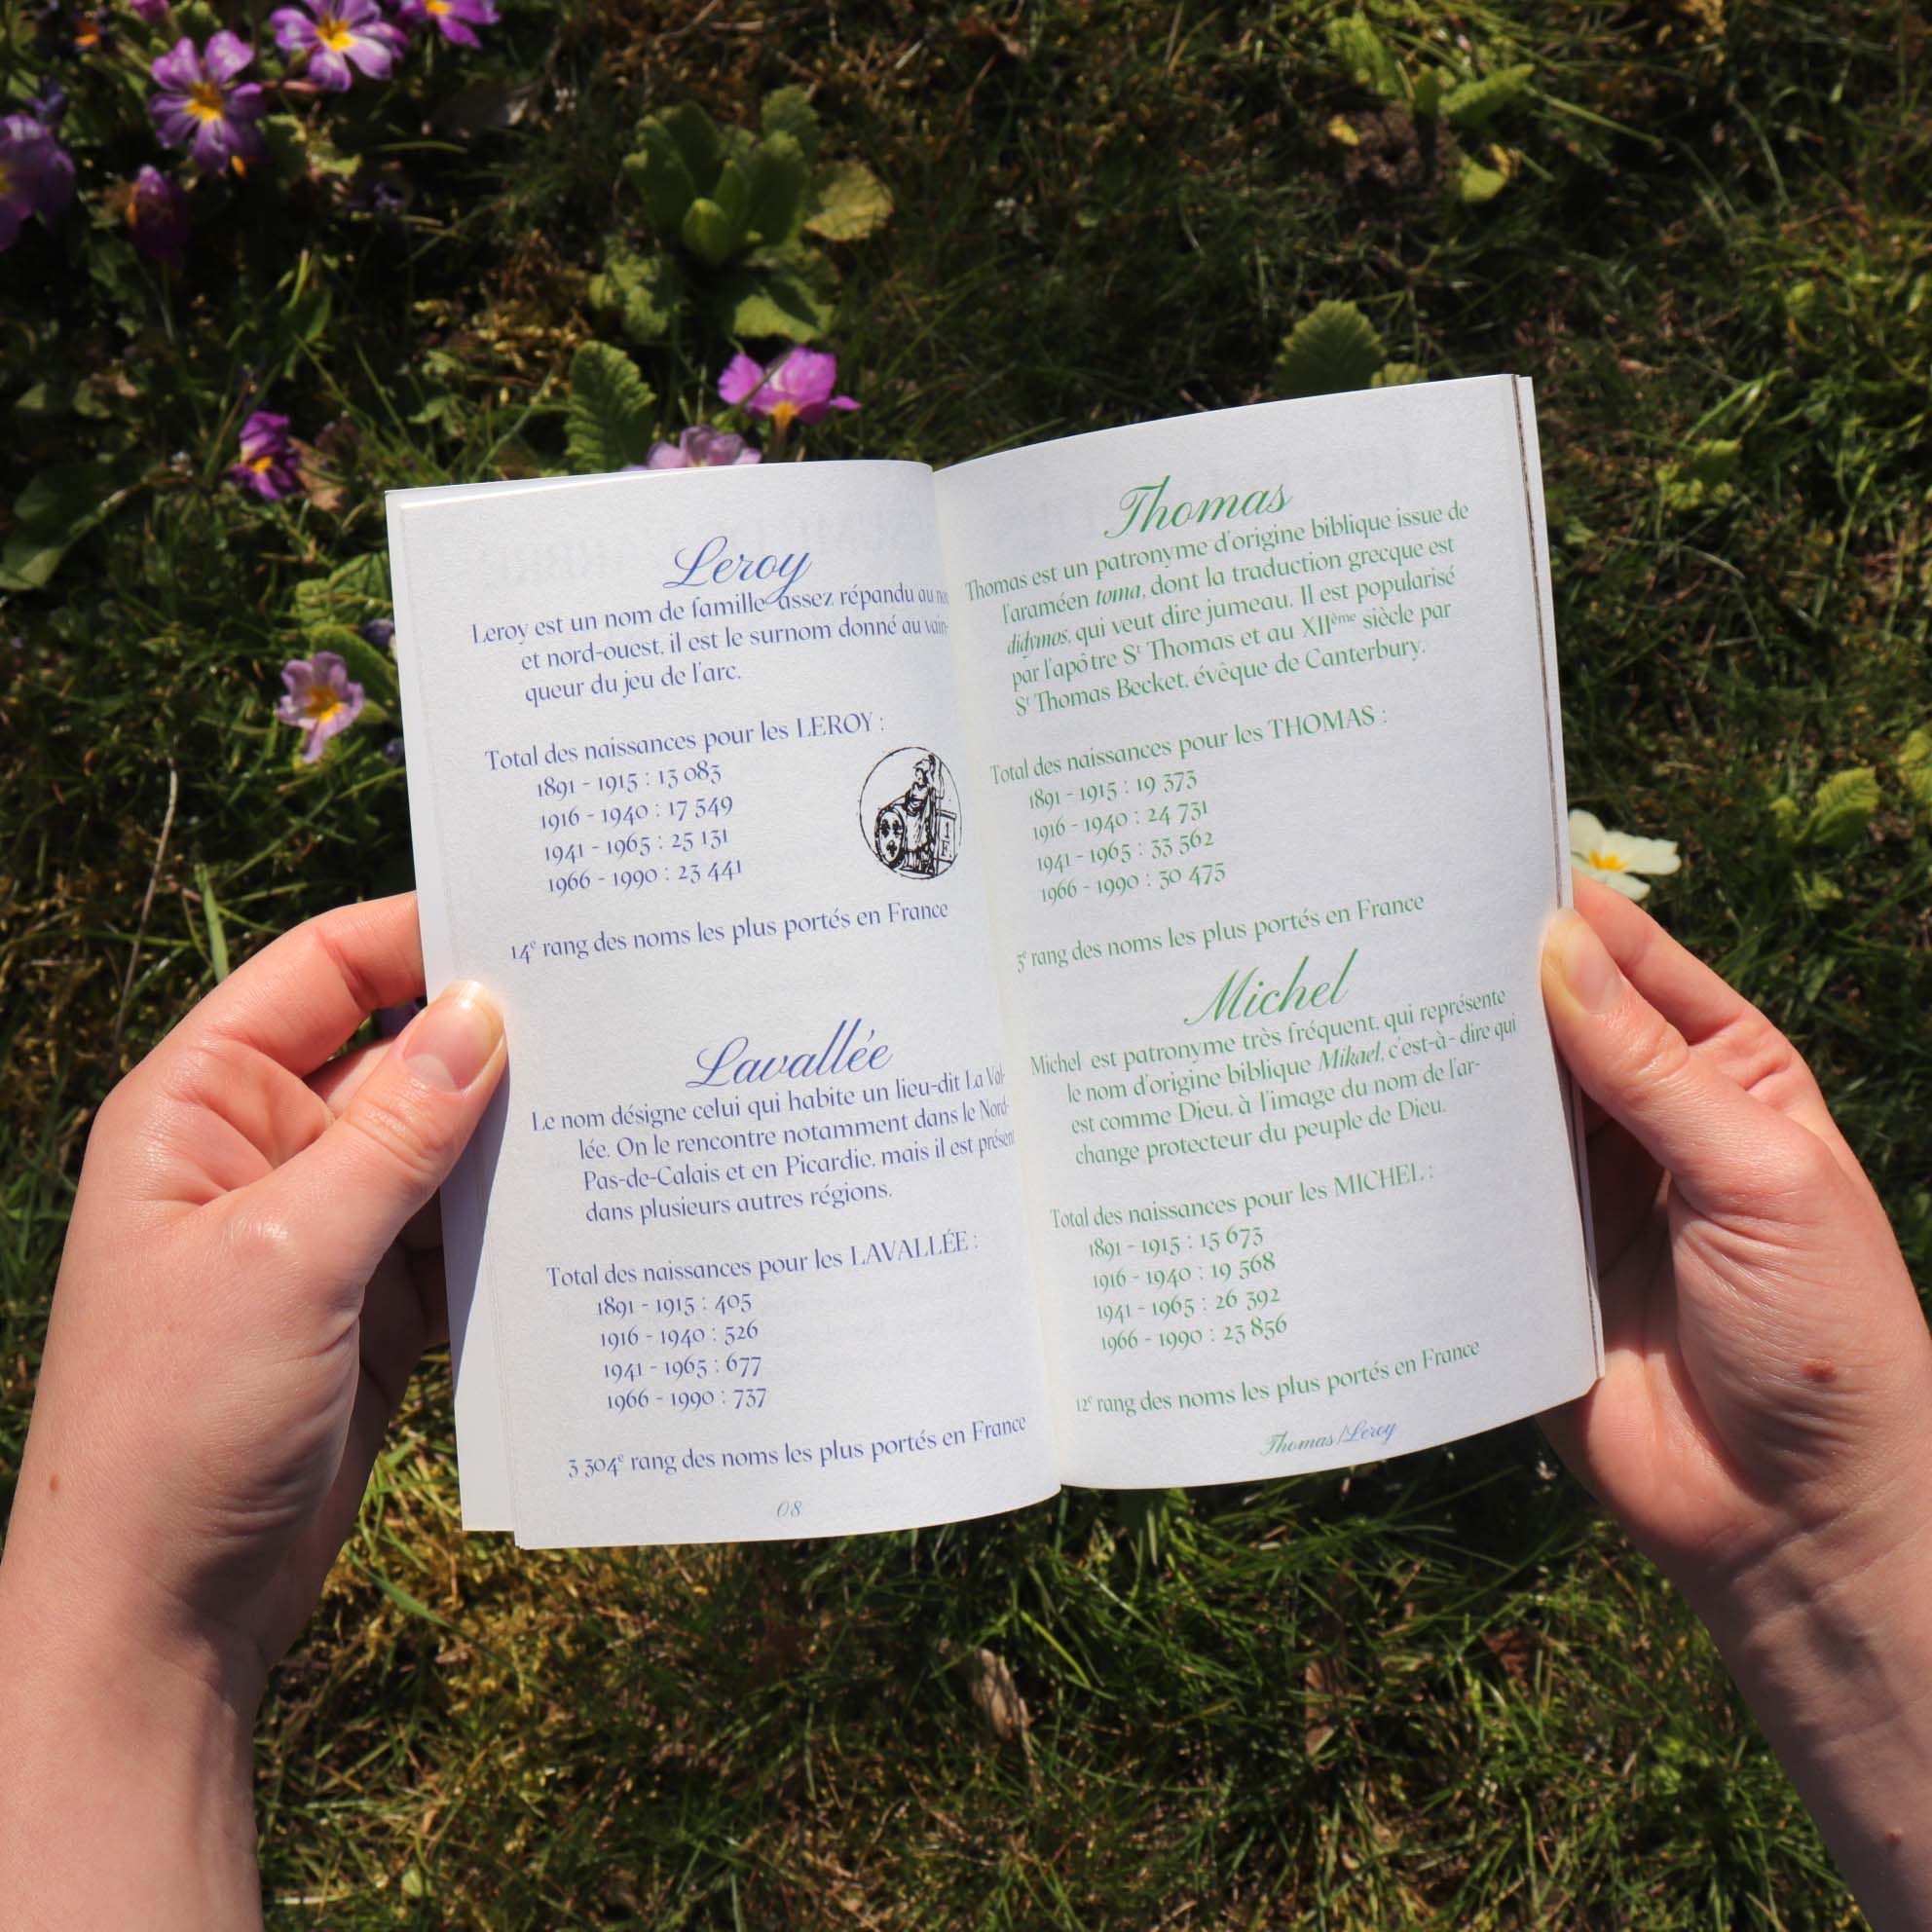 Leroy
Leroy est un nom de famille assez répandu au
et nord-ouest, il est le surnom donné au vain-
queur du jeu de l'arc.
Total des naissances pour les LEROY :
1891 - 1915 : 13 083
1916 - 1940 : 17 549
1941 - 1965 : 25 131
1966 - 1990 : 23 441
14e rang des noms les plus portés en France
Lavallée
Le nom désigne celui qui habite un lieu-dit La Val-
lée. On le rencontre notamment dans le Nord-
Pas-de-Calais et en Picardie, mais il est présent
dans plusieurs autres régions.
Total des naissances pour les LAVALLÉE :
1891 - 1915 : 405
1916 - 1940 : 526
1941 - 1965 : 677
1966 - 1990 : 737
3 304e rang des noms les plus portés en France
08
Thomas
Thomas est un patronyme d'origine biblique issue de
l'araméen toma, dont la traduction grecque est
didymos, qui veut dire jumeau. Il est popularisé
par l'apôtre St Thomas et au XIIème siècle par
St Thomas Becket, évêque de Canterbury.
Total des naissances pour les THOMAS :
1891 - 1915 : 19 373
1916 - 1940 : 24 731
1941 - 1965 : 33 562
1966 - 1990 : 30 475
rang des noms les plus portés en France
Michel
Michel est patronyme très fréquent, qui représente
le nom d'origine biblique Mikael, c'est-à- dire qui
est comme Dieu, à l'image du nom de l'ar-
change protecteur du peuple de Dieu.
Total des naissances pour les MICHEL :
1891 - 1915 : 15 673
1916 - 1940 : 19 568
1941 - 1965 : 26 392
1966 - 1990 : 23 856
12e rang des noms les plus portés en France
Thomas/Leroy